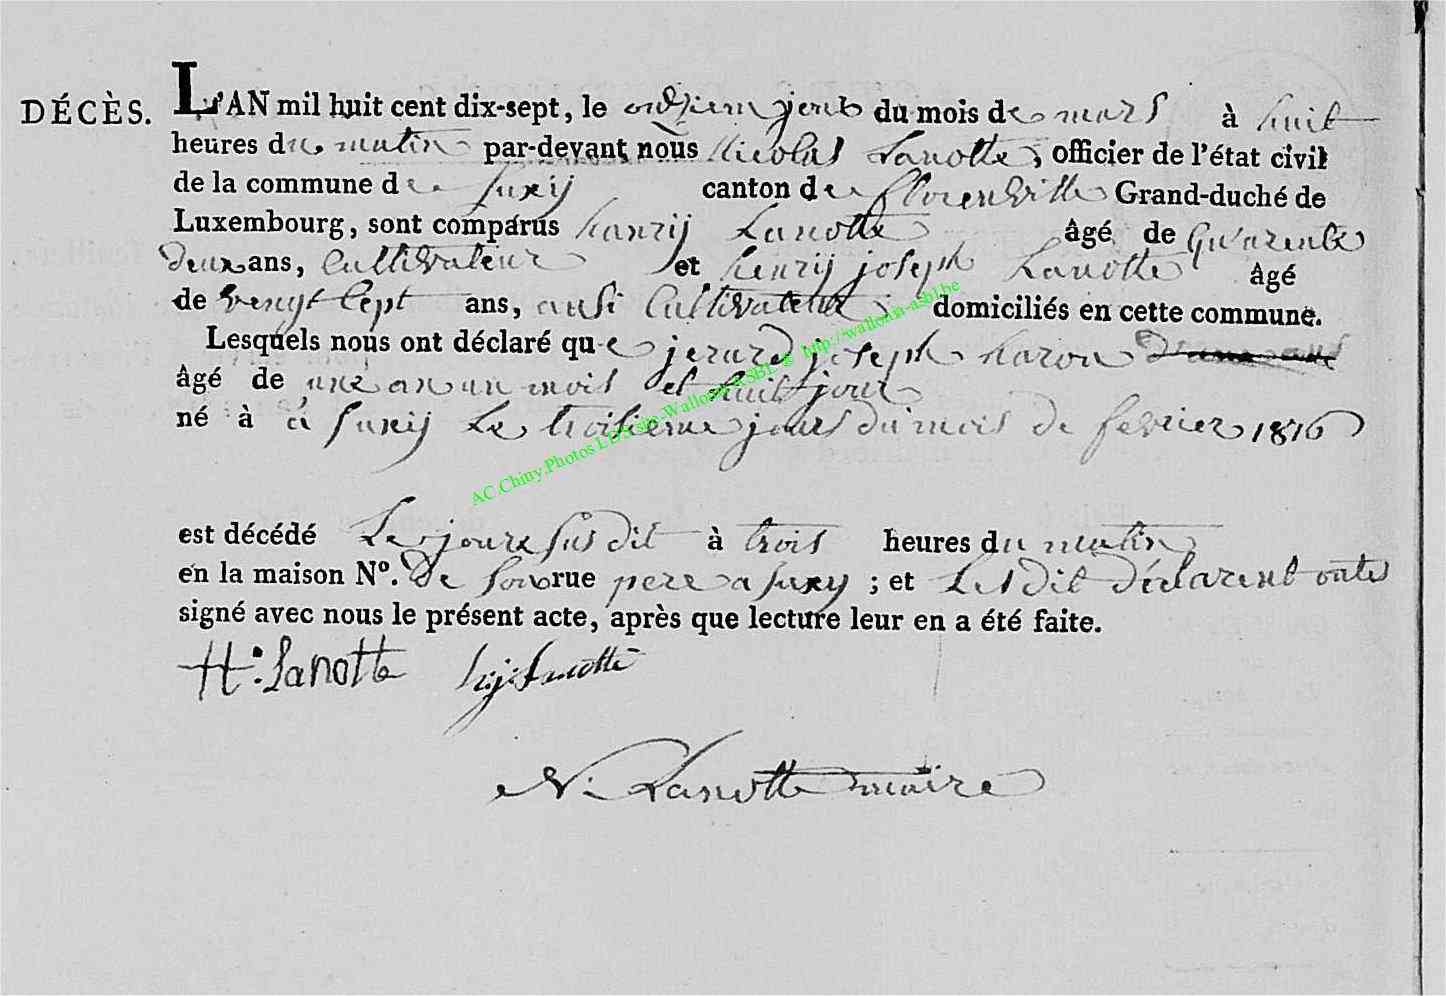 DÉCÈS.
L'AN mil huit cent dix-sept, le onziem jour du mois de mars à huit
heures du matin par-devant nous Nicolas Lanotte, officier de l'état civil
de la commune de Suxij canton de florenville Grand-duché de
Luxembourg, sont comparus hanrij Lanotte âgé de quarente
deux ans, Cultivateur et henrij joseph Lanotte âgé
de vengt sept ans, ausi Cultivateur domiciliés en cette commune.
Lesquels nous ont déclaré que jerard joseph haron
âgé de une an un mois et huit jour
né à ci Suxij Le troisieme jours du mois de fevrier 1816
est décédé Le jour susdit à trois heures du matin
en la maison N°. de son rue pere a Suxy ; et Lesdit déclarent onts
signé avec nous le présent acte, après que lecture leur en a été faite.
H: Lanotte hj: Lanotte
N. Lanotte maire
AC.Chiny.Photos LDS site-Wallonia ASBL @ http://wallonia-asbl.be